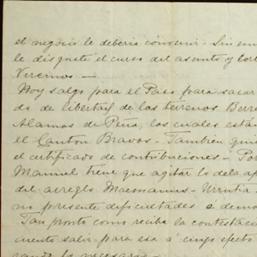 el negocio le deberia convenir - Sin em
le disguste el curso del asunto y cor
Veremos —
Hoy salgo para el Paso para sacar
do de libertad de los terrenos Berre
Alamos de Peña, los cuales están
el Canton Bravos - Tambien quie
el certificado de contribuciones - Por
Manuel tiene que agitar lo del ap
del arreglo Macmanus - Urrutia
no presente dificultades ó demo
Tan pronto como reciba la contestaci
cuento salir para esa á cuyo efecto